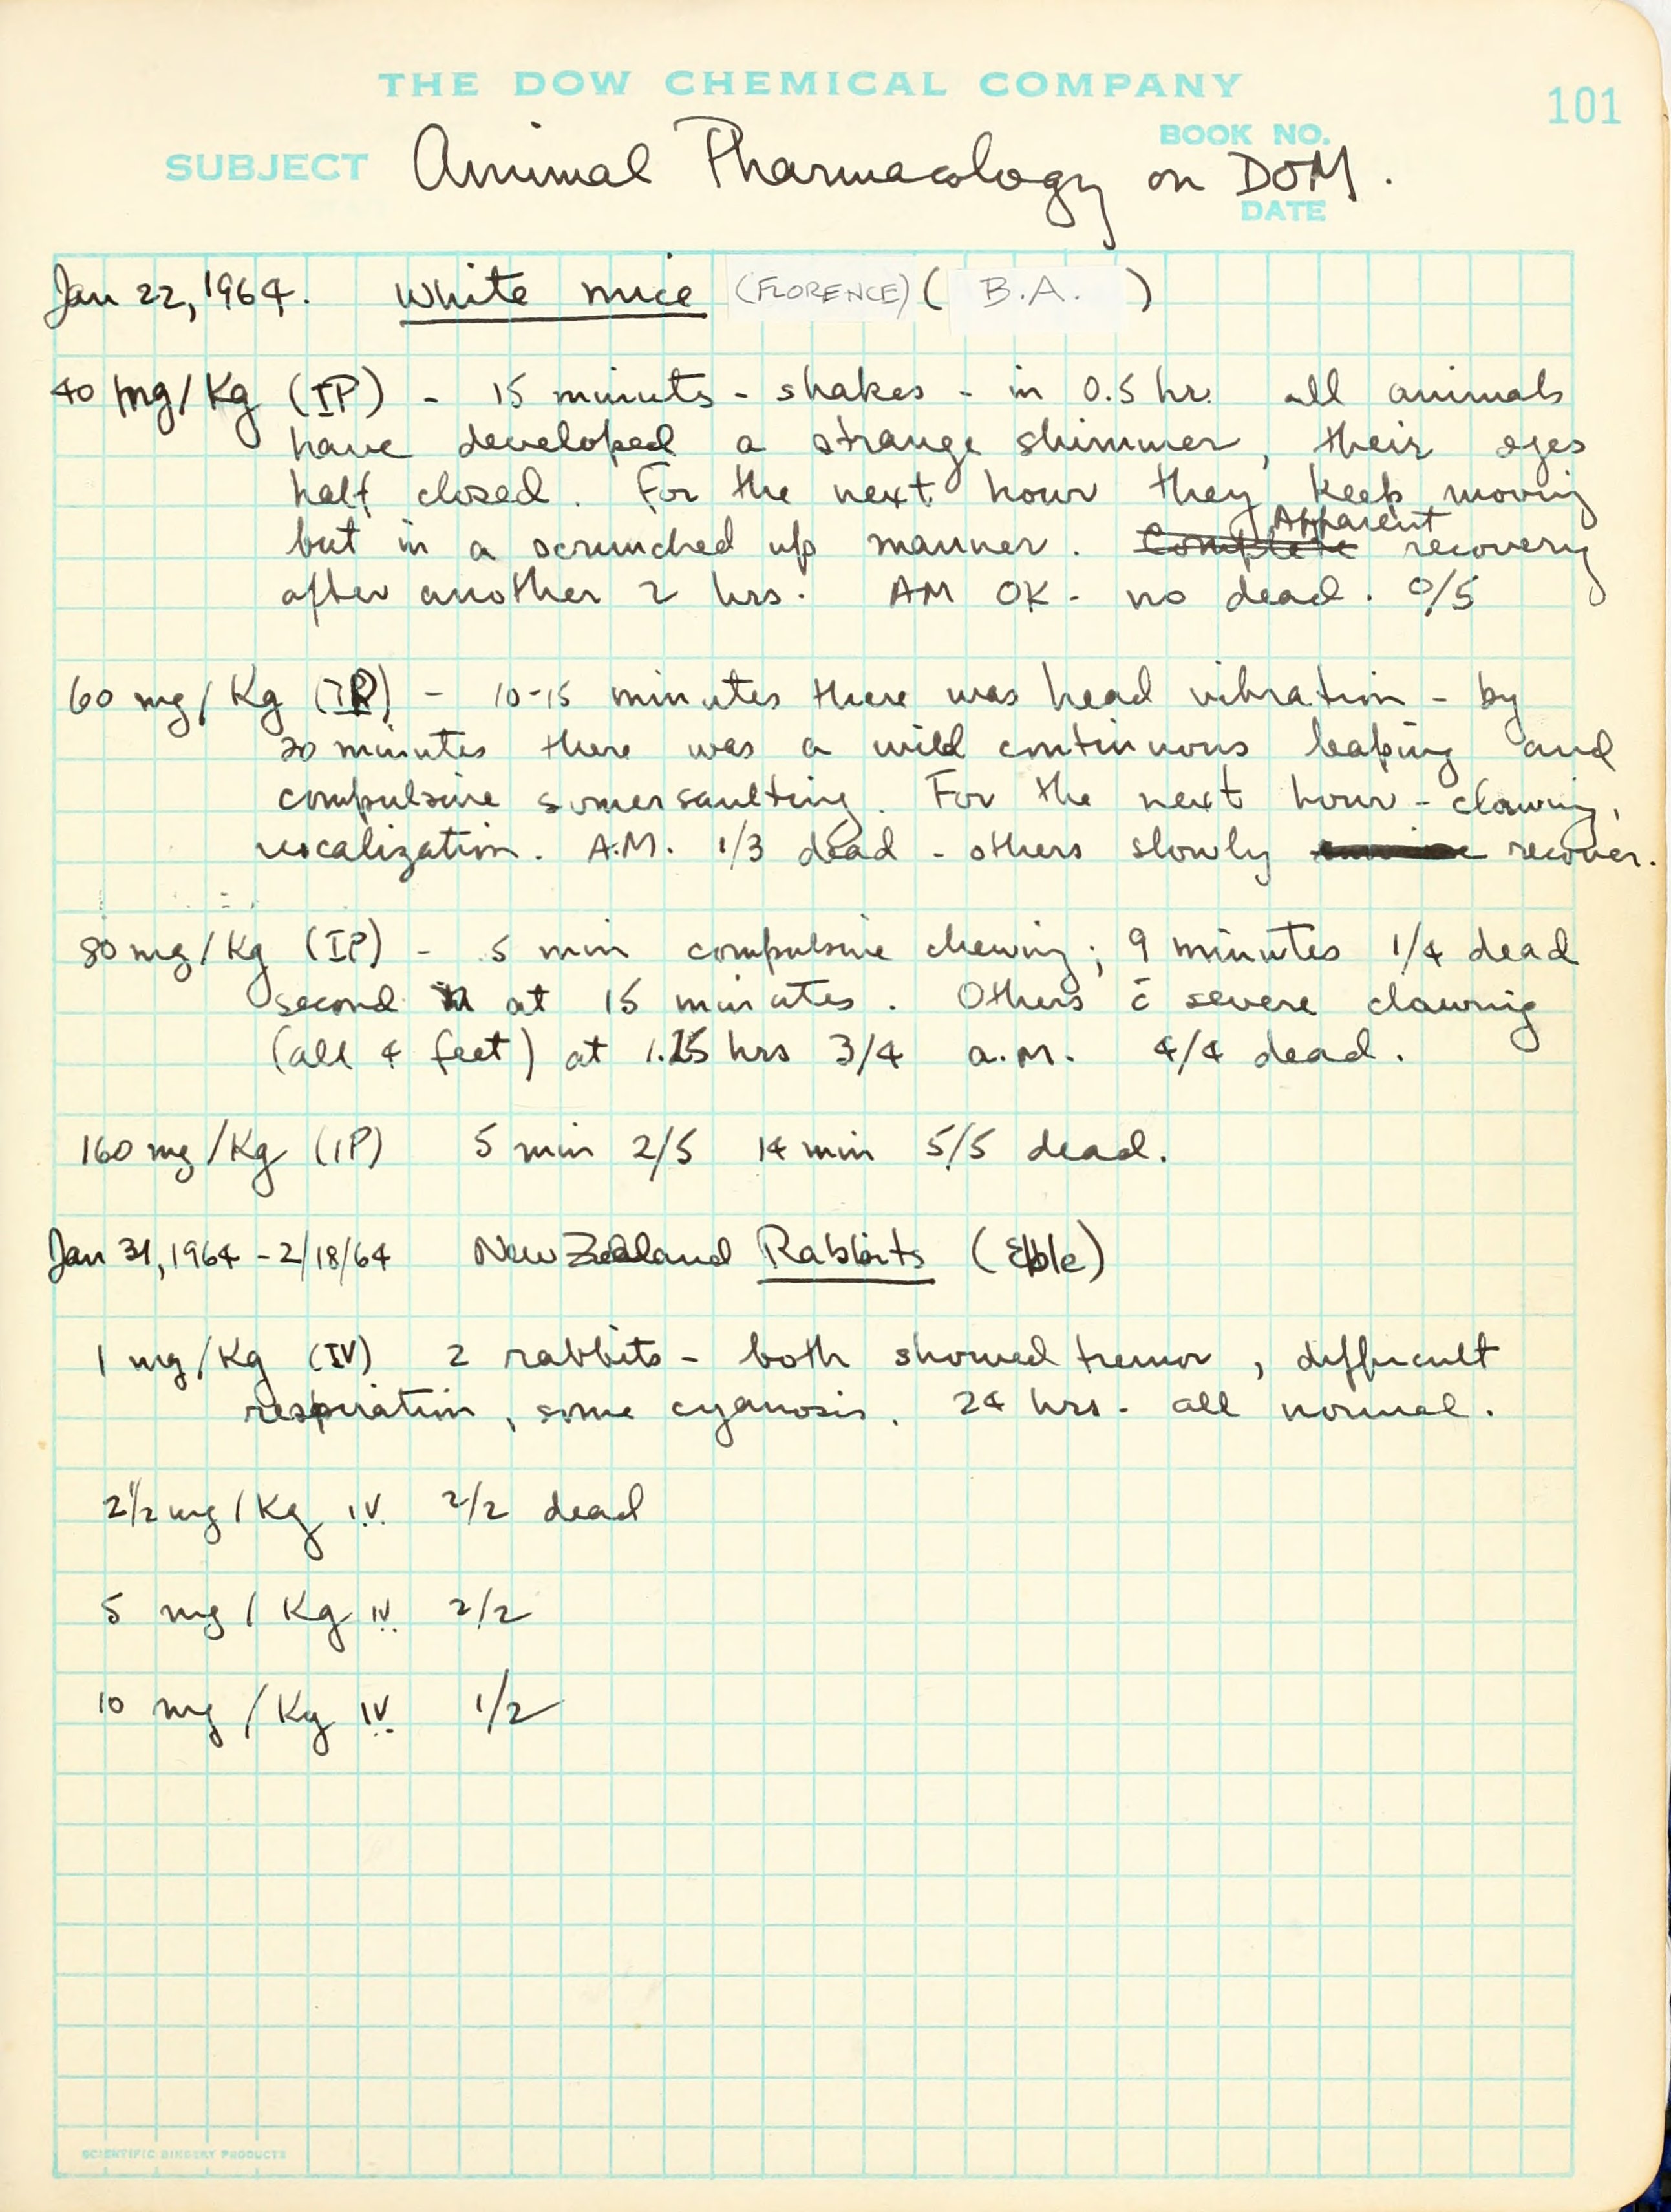 THE DOW CHEMICAL COMPANY
101
BOOK NO.
SUBJECT Animal Pharmacology on DOM.
DATE
Jan 22, 1964. White mice (FLORENCE) ( B.A. )
40 mg/Kg (IP) - 15 minuts - shakes - in 0.5 hr. all animals
have developed a strange shimmer, their eyes
half closed. For the next hour they keep moving
but in a scrunched up manner. Complete Apparent recovery
after another 2 hrs. AM OK - no dead. 0/5
60 mg/Kg (IP) - 10-15 minutes there was head vibration - by
20 minutes there was a wild continuous leaping and
compulsive somersaulting. For the next hour - clawing,
vocalization. A.M. 1/3 dead - others slowly recover.
80 mg/Kg (IP) - 5 min compulsive chewing; 9 minutes 1/4 dead
second at 15 minutes. Others c̄ severe clawing
(all 4 feet) at 1.25 hrs 3/4 a.m. 4/4 dead.
160 mg/Kg (IP) 5 min 2/5 14 min 5/5 dead.
Jan 31, 1964 - 2/18/64 New Zealand Rabbits (Eble)
1 mg/Kg (IV) 2 rabbits - both showed tremor, difficult
respiration, some cyanosis. 24 hrs - all normal.
2 1/2 mg/Kg I.V. 2/2 dead
5 mg/Kg IV 2/2
10 mg/Kg IV 1/2
SCIENTIFIC BINDERY PRODUCTS